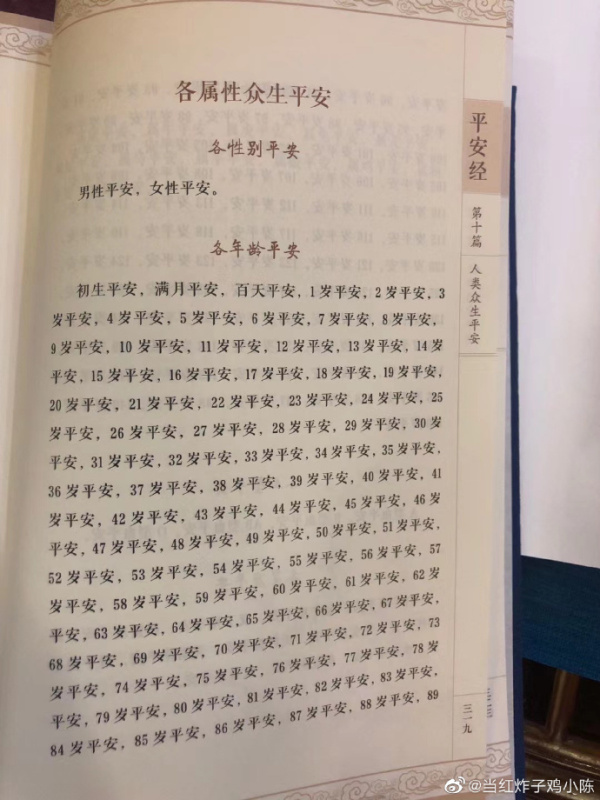 各属性众生平安
各性别平安
男性平安，女性平安。
各年龄平安
初生平安，满月平安，百天平安，1岁平安，2岁平安，3
岁平安，4岁平安，5岁平安，6岁平安，7岁平安，8岁平安，
9岁平安，10岁平安，11岁平安，12岁平安，13岁平安，14岁
平安，15岁平安，16岁平安，17岁平安，18岁平安，19岁平安，
20岁平安，21岁平安，22岁平安，23岁平安，24岁平安，25
岁平安，26岁平安，27岁平安，28岁平安，29岁平安，30岁
平安，31岁平安，32岁平安，33岁平安，34岁平安，35岁平安，
36岁平安，37岁平安，38岁平安，39岁平安，40岁平安，41
岁平安，42岁平安，43岁平安，44岁平安，45岁平安，46岁
平安，47岁平安，48岁平安，49岁平安，50岁平安，51岁平安，
52岁平安，53岁平安，54岁平安，55岁平安，56岁平安，57
岁平安，58岁平安，59岁平安，60岁平安，61岁平安，62岁
平安，63岁平安，64岁平安，65岁平安，66岁平安，67岁平安，
68岁平安，69岁平安，70岁平安，71岁平安，72岁平安，73
岁平安，74岁平安，75岁平安，76岁平安，77岁平安，78岁
平安，79岁平安，80岁平安，81岁平安，82岁平安，83岁平安，
84岁平安，85岁平安，86岁平安，87岁平安，88岁平安，89
平安经
第十篇
人类众生平安
三一九
@当红炸子鸡小陈